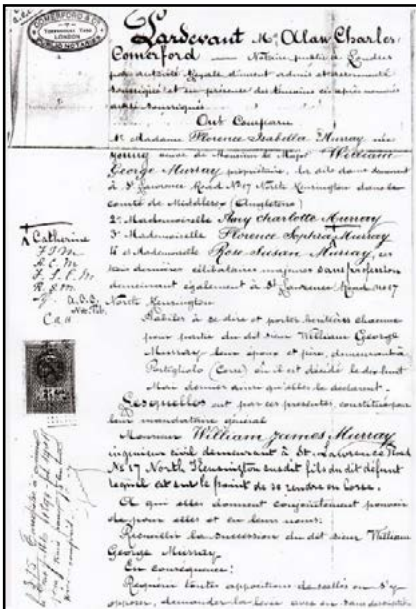 COMERFORD & Co
TOKENHOUSE YARD
LONDON
NOTARIES
Pardevant Me Alan Charles
Comerford Notaire public à Londres
par autorité Royale dûment admis et assermenté
soussigné et en présence des témoins ci après nommés
aussi soussignés
Ont Comparu
1o Madame Florence Isabella Murray née
Young veuve de Monsieur le Major William
George Murray propriétaire, la dite dame demeurant
à St Lawrence Road No 17 North Kensington dans le
comté de Middlesex (Angleterre)
2o Mademoiselle Amy Charlotte Murray
3o Mademoiselle Florence Sophia Murray
4o et Mademoiselle Rose Susan Murray, ces
trois dernières célibataires majeures sans profession
demeurant également à St Lawrence Road no 17
North Kensington
Catherine
F. I. M
A. C. M
F. S. C. M
R. S. M
A.C.C.
Not. Pub.
Habiles à se dire et porter héritières chacune
pour partie du dit sieur William George
Murray leur époux et père, demeurant à
Portigliolo (Corse) où il est décédé le dix huit
Mai dernier ainsi qu'elles le déclarent.
Lesquelles ont par ces présentes, constitué pour
leur mandataire général
Monsieur William James Murray
ingénieur civil demeurant à St. Lawrence Road
No 17 North Kensington susdit fils du dit défunt
lequel est sur le point de se rendre en Corse.
A qui elles donnent conjointement pouvoir
de pour elles et en leur noms:
Recueillir la succession du dit sieur William
George Murray
En conséquence:
Requérir toutes appositions de scellés ou s'y
opposer, demander la levée avec ou sans description